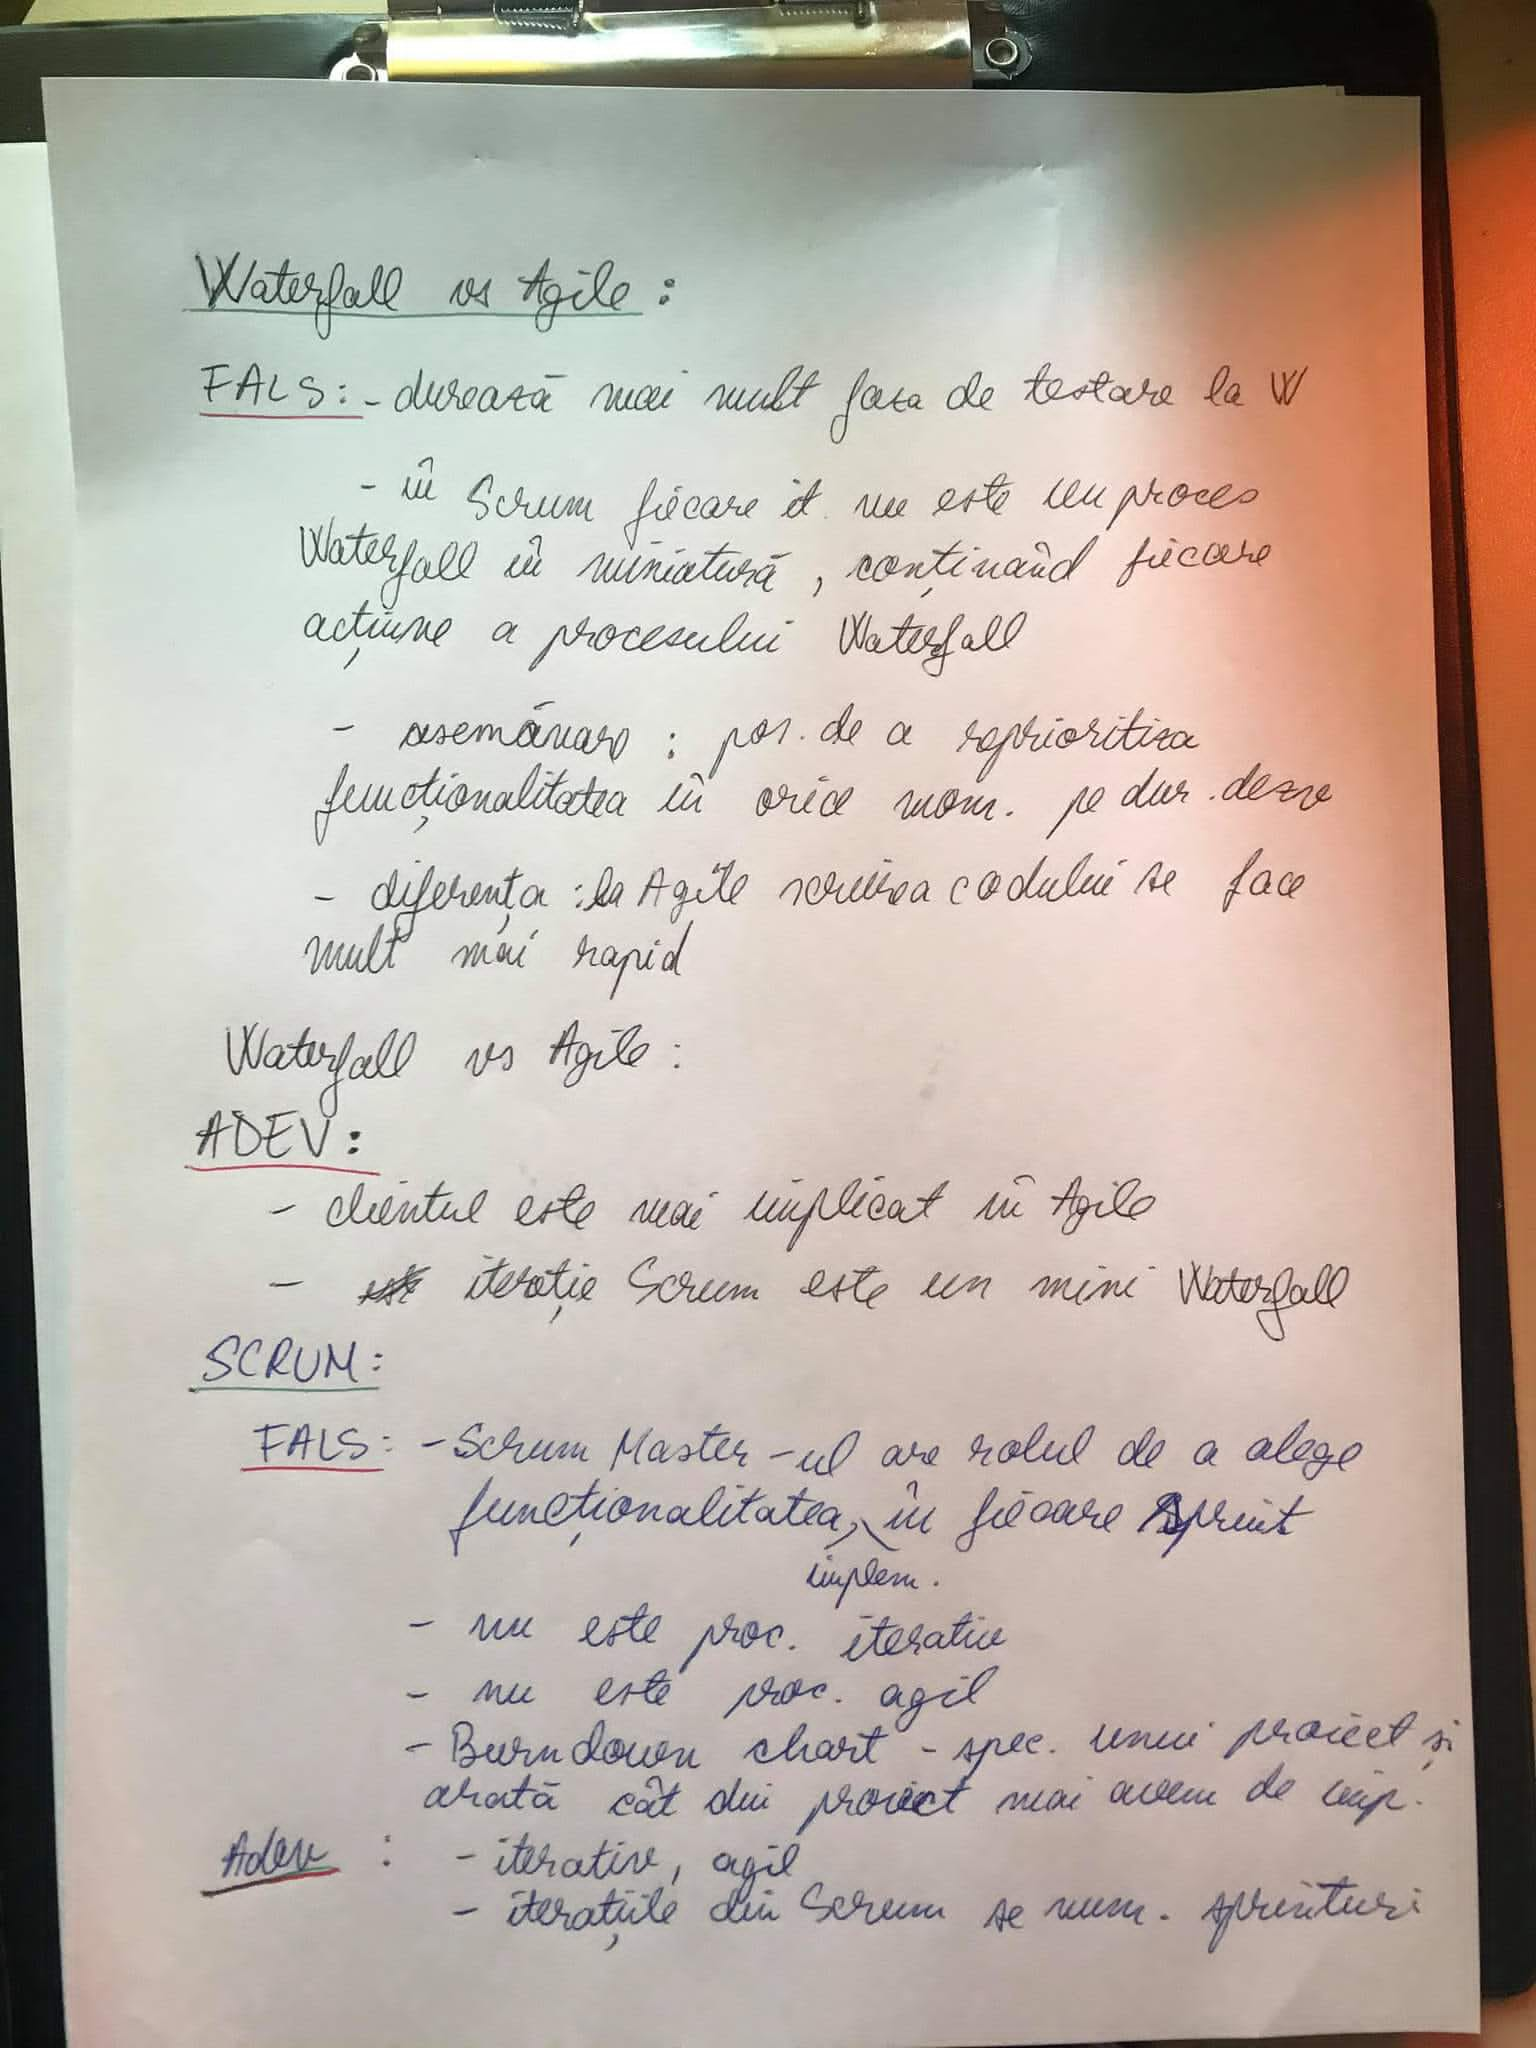 Waterfall vs Agile :
FALS: - durează mai mult faza de testare la W
- în Scrum fiecare it. nu este un proces
Waterfall în miniatură, conținând fiecare
acțiune a procesului Waterfall
- asemănare : pos. de a reprioritiza
funcționalitatea în orice mom. pe dur. dezv
- diferența : la Agile scrierea codului se face
mult mai rapid
Waterfall vs Agile :
ADEV :
- clientul este mai implicat în Agile
- iterație Scrum este un mini Waterfall
SCRUM :
FALS : - Scrum Master-ul are rolul de a alege
funcționalitatea, în fiecare Sprint
implem.
- nu este proc. iterativ
- nu este proc. agil
- Burndown chart - spec. unui proiect și
arată cât din proiect mai avem de imp.
Adev : - iterativ, agil
- iterațiile din Scrum se num. sprinturi